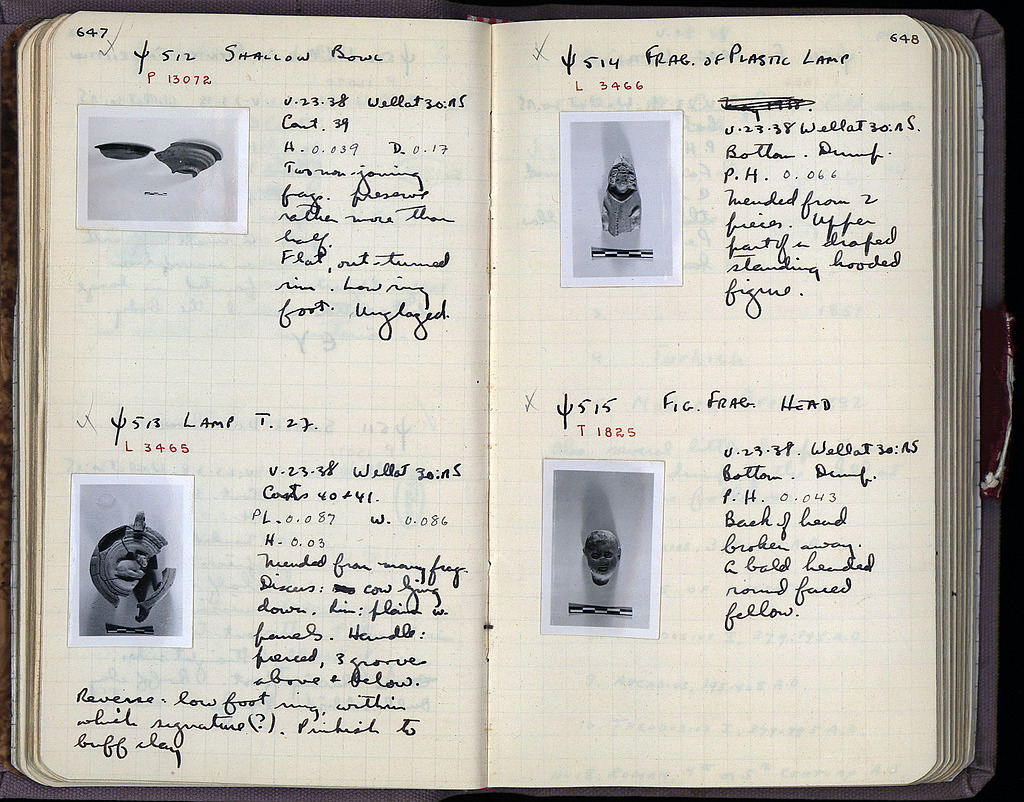 647
ψ 512 SHALLOW BOWL
P 13072
V.23.38 Well at 30:ΛS
Cont. 39
H. 0.039 D. 0.17
Two non-joining
frags. preserve
rather more than
half.
Flat, out-turned
rim. Low ring
foot. Unglazed.
ψ 513 LAMP T. 27.
L 3465
V.23.38 Well at 30:ΛS
Conts 40 + 41.
PL. 0.087 W. 0.086
H. 0.03
Mended from many frag.
Discus: cow lying
down. Rim: plain w.
panels. Handle:
pierced, 3 grooves
above & below.
Reverse: low foot ring, within
which signature(?). Pinkish to
buff clay
648
ψ 514 FRAG. OF PLASTIC LAMP
L 3466
V.23.38 Well at 30:ΛS.
Bottom. Dump.
P.H. 0.066
Mended from 2
pieces. Upper
part of a draped
standing hooded
figure.
ψ 515 FIG. FRAG. HEAD
T 1825
V.23.38. Well at 30:ΛS
Bottom. Dump.
P.H. 0.043
Back of head
broken away.
A bald headed
round faced
fellow.